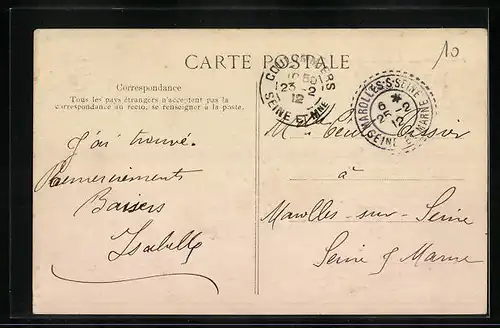 10
CARTE POSTALE
Correspondance
Tous les pays étrangers n'acceptent pas la
correspondance au recto, se renseigner à la poste.
J'ai trouvé.
Remerciements
Baisers
Isabelle
COULOMMIERS
23-2
12
SEINE ET MNE
MAROLLES-S-SEINE
6
25-2
12
SEINE ET MARNE
à
Marolles-sur-Seine
Seine & Marne